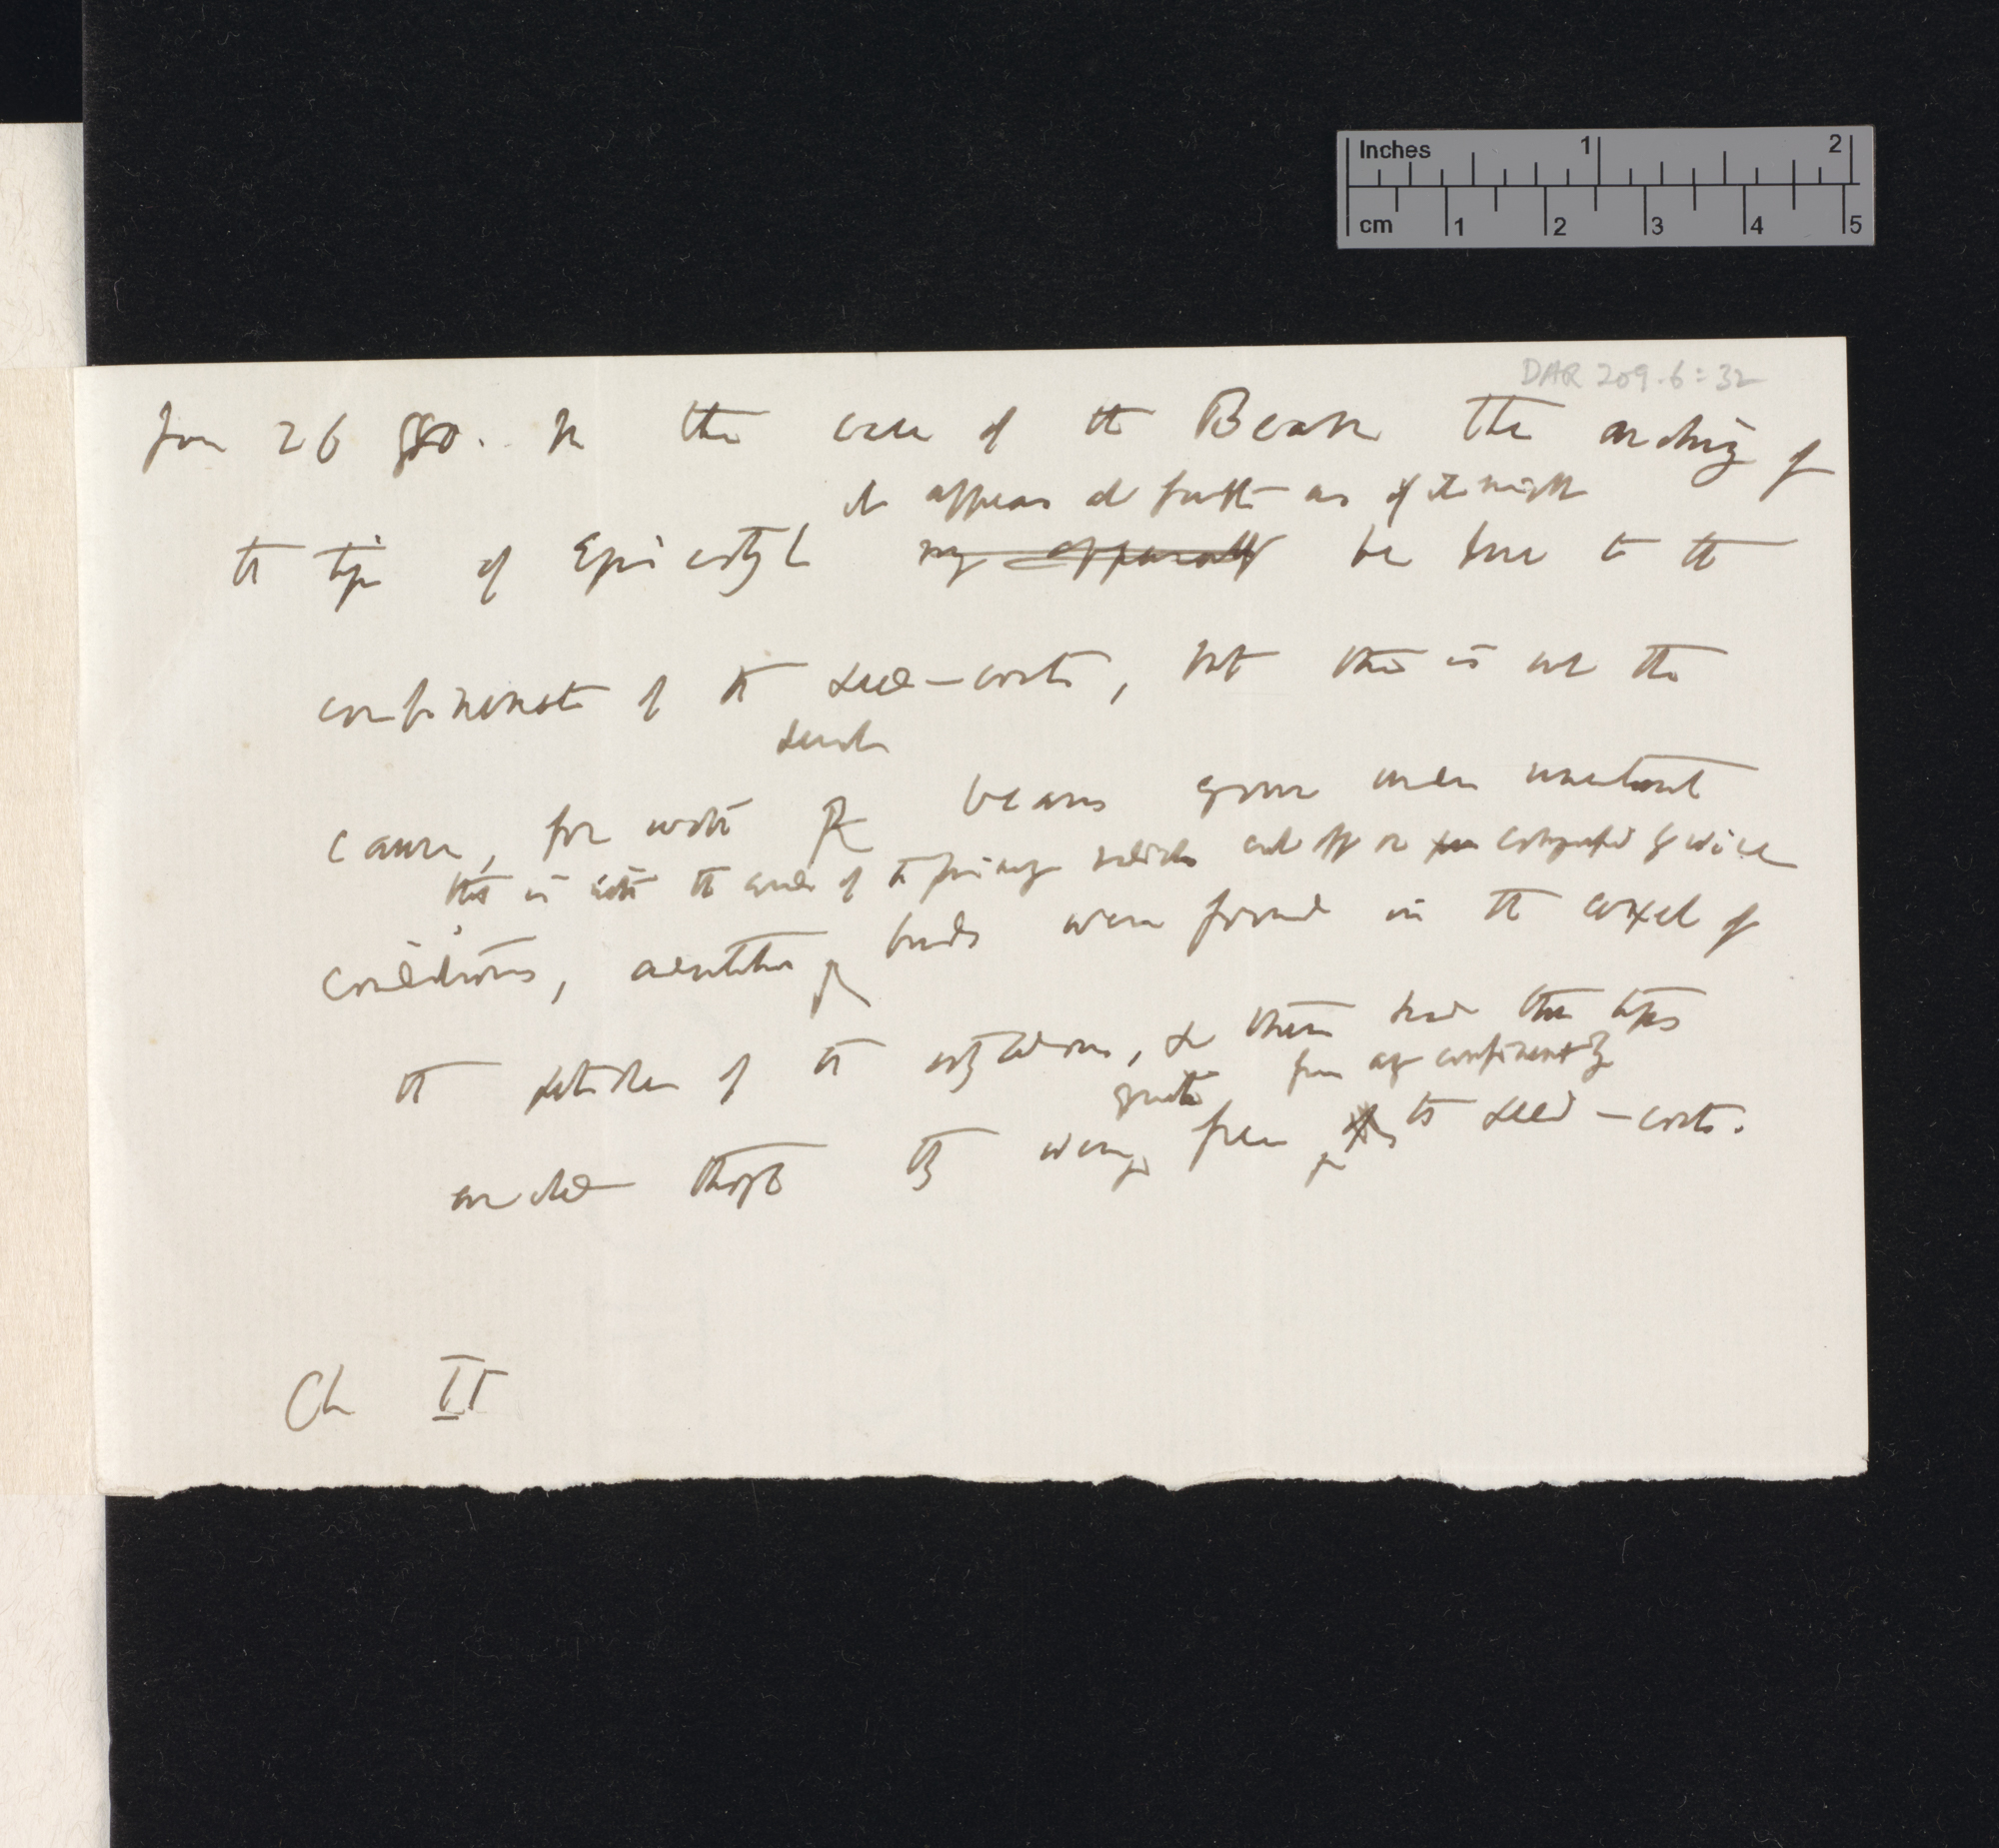 Inches 1 2
cm 1 2 3 4 5
DAR 209.6:32
Jan 26 1880. In the case of the Bean the arching of
it appears at first as if it might
the tip of Epicotyl may apparently be due to the
confinement of the seed-coats, but this is not the
such
cause, for with beans grown under unnatural
that is with the ends of the primary radicle cut off or compressed by wire
conditions, buds were found in the axel of
the petioles of the cotyledons, & these had their tips
quite from any confinement by
arched though they were free the seed-coats.
Ch II